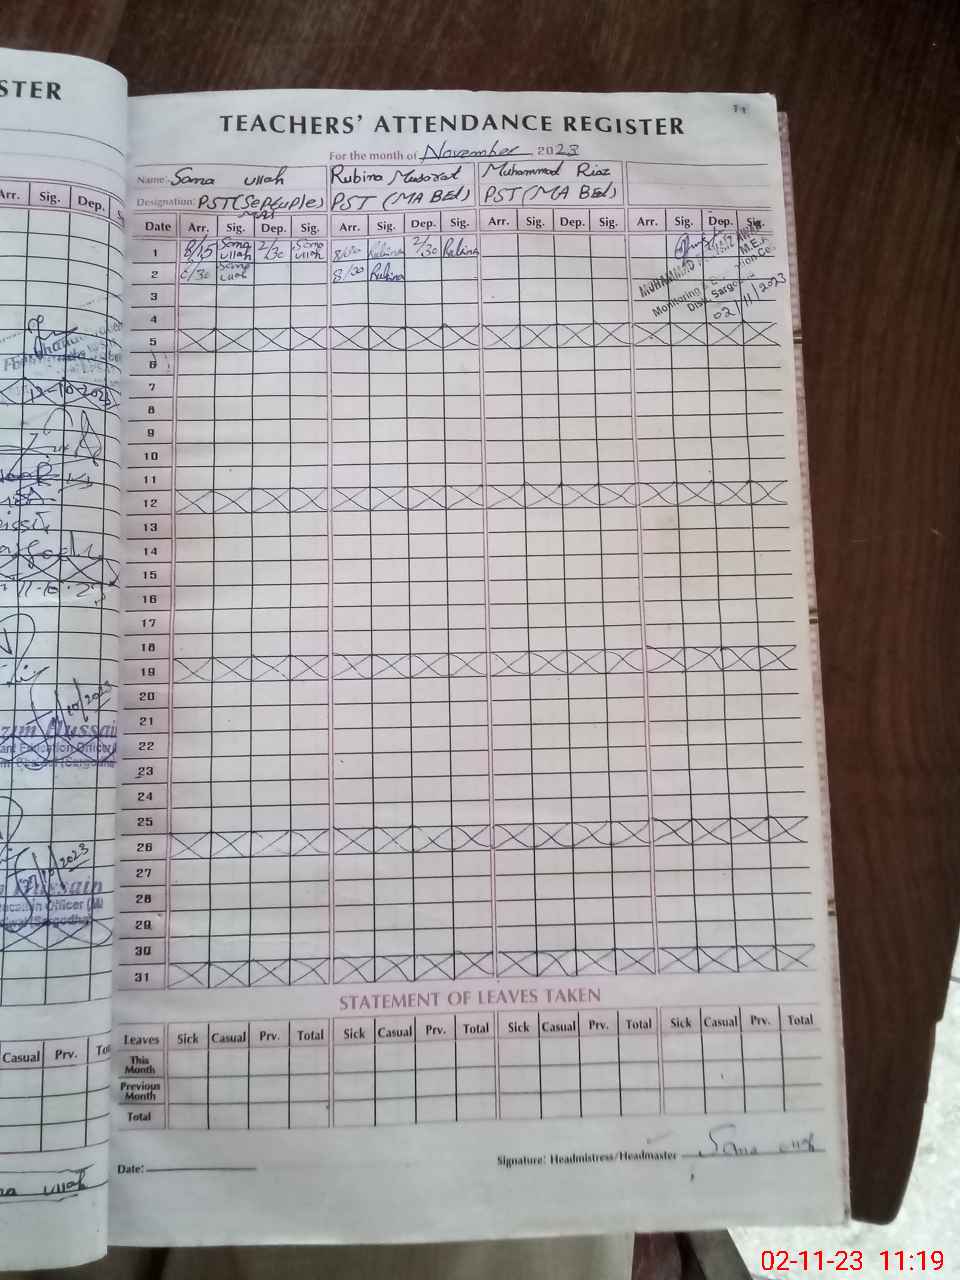 STER
TEACHERS' ATTENDANCE REGISTER
For the month of November 2023
Name: Sana ullah Rubina Muhammad Riaz
Designation: PST PST (MA BEd) PST (MA BEd)
Arr. Sig. Dep.
Date Arr. Sig. Dep. Sig. Arr. Sig. Dep. Sig. Arr. Sig. Dep. Sig. Arr. Sig. Dep. Sig.
1 8/15 Sana ullah 2/30 Sana ullah 8/00 Rubina 2/30 Rubina
2 8/30 Sana ullah 8/00 Rubina
MUHAMMAD
M.E.A
Monitoring
Dist. Sargodha
02/11/2023
3
4
5
6
7
8
9
10
11
12
13
14
15
16
17
18
19
20
21
22
23
24
25
26
27
28
29
30
31
12-10-2023
Hussain
Education Officer
2023
Hussain
Education Officer
(Sargodha)
STATEMENT OF LEAVES TAKEN
Leaves Sick Casual Prv. Total Sick Casual Prv. Total Sick Casual Prv. Total Sick Casual Prv. Total
This Month
Previous Month
Total
Casual Prv.
Date:
Signature: Headmistress/Headmaster Sana ullah
ullah
02-11-23 11:19